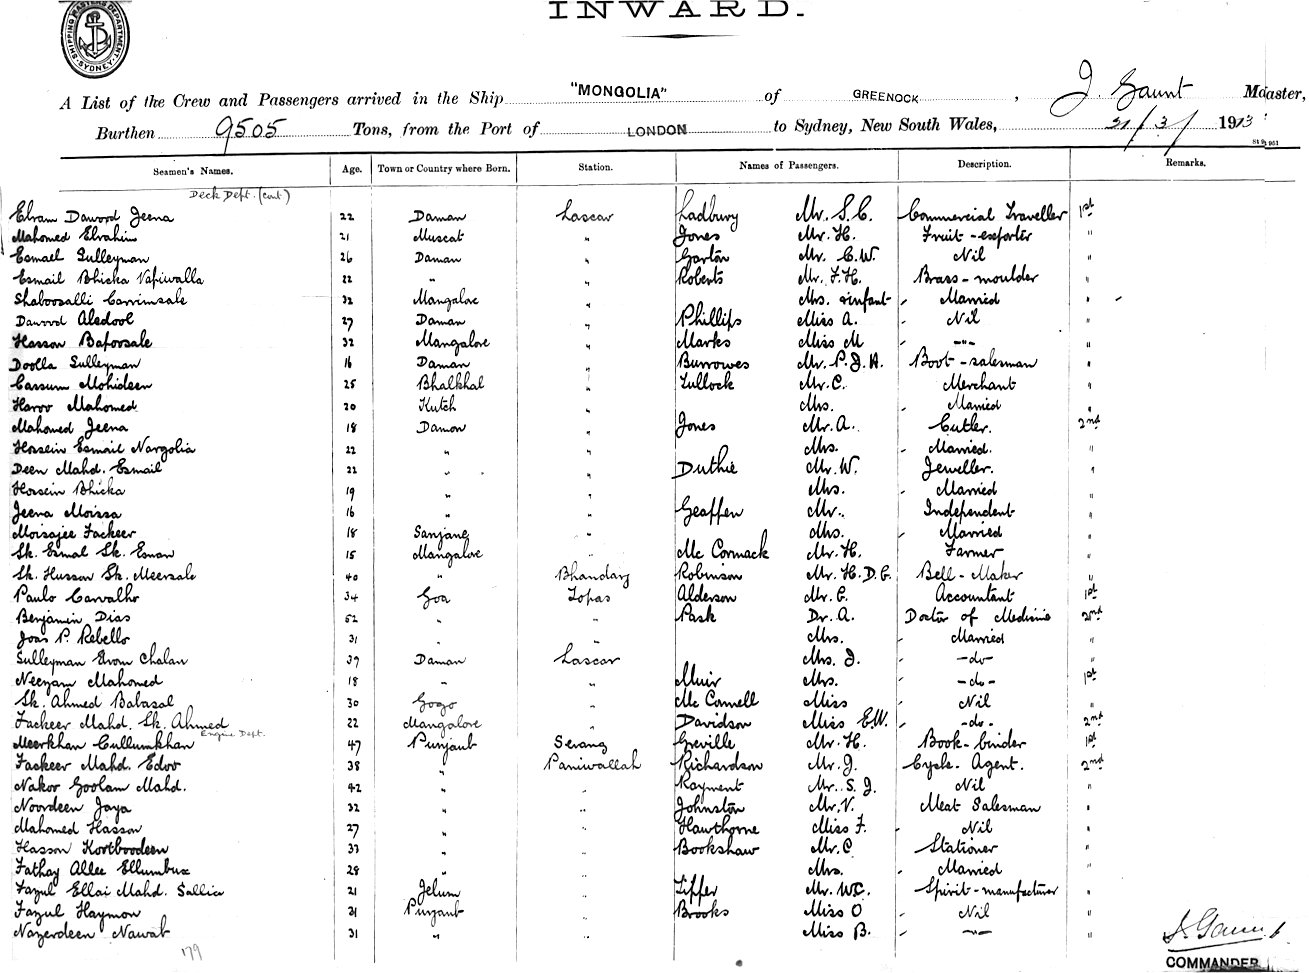 INWARD.
SHIPPING MASTERS DEPARTMENT. SYDNEY.
A List of the Crew and Passengers arrived in the Ship "MONGOLIA" of GREENOCK, J. Gaunt Master,
Burthen 9505 Tons, from the Port of LONDON to Sydney, New South Wales, 21/3/1913
Seamen's Names. Age. Town or Country where Born. Station. Names of Passengers. Description. Remarks.
Deck Dept. (cont)
Ebram Dawood Jeena 22 Daman Lascar Ladbury Mr. S. C. Commercial Traveller 1st
Mahomed Ebrahim 21 Muscat " Jones Mr. H. Fruit-exporter "
Esmael Sulleyman 26 Daman " Garton Mr. C. W. Nil "
Esmail Bhicka Vafiwalla 22 " " Roberts Mr. F. H. Brass-moulder "
Shaboosalli Carrimsale 32 Mangalore " Mrs. & infant Married "
Dawood Aledool 27 Daman " Phillips Miss A. Nil "
Hasson Bafoosale 32 Mangalore " Marks Miss M -"- "
Doolla Sulleyman 16 Daman " Burrowes Mr. P. J. A. Boot-salesman "
Cassum Mohideen 25 Bhalkhal " Tullock Mr. C. Merchant "
Haroo Mahomed 20 Kutch " Mrs. Married "
Mahomed Jeena 18 Damon " Jones Mr. A. Cutler. 2nd
Hossein Esmail Nargolia 22 " " Mrs. Married. "
Deen Mahd. Esmail 22 " " Duthie Mr. W. Jeweller. "
Hossein Bhicka 19 " " Mrs. Married "
Jeena Moissa 16 " " Geaffen Mr. Independent "
Moisajee Fackeer 18 Sanjane " Mrs. Married "
Sk. Esmal Sk. Esman 15 Mangalore " Mc Cormack Mr. H. Farmer "
Sk. Husson Sk. Meersale 40 " Bhandary Robinson Mr. H. D. G. Bell-Maker "
Paulo Carvalho 34 Goa Topas Alderson Mr. C. Accountant 1st
Benjamin Dias 52 " " Pask Dr. A. Doctor of Medicine 2nd
Joas P. Rebello 31 " " Mrs. Married "
Sulleyman Chalan 39 Daman Lascar Mrs. J. -do- "
Neeyam Mahomed 18 " " Muir Mrs. -do- 1st
Sk. Ahmed Babasal 30 Gogo " Mc Connell Miss Nil "
Fackeer Mahd. Sk. Ahmed 22 Mangalore " Davidson Miss E.W. -do- 2nd
Engine Dept.
Meerkhan Cullumkhan 47 Punjaub Serang Greville Mr. H. Book-binder 1st
Fackeer Mahd. Edoo 38 " Paniwallah Richardson Mr. J. Cycle Agent. 2nd
Nakor Goolam Mahd. 42 " " Rayment Mr. S. J. Nil "
Noordeen Jaya 32 " " Johnston Mr. V. Meat Salesman "
Mahomed Hasson 27 " " Hawthorne Miss F. Nil "
Hasson Kootboodeen 33 " " Bookshaw Mr. C Stationer "
Fathay Allee Ellumbux 28 " " Mrs. Married "
Fazul Ellai Mahd. Sallia 21 Jelum " Tipper Mr. W.C. Spirit-manufacturer "
Fazul Haymon 31 Punjaub " Brooks Miss O Nil "
Nazerdeen Nawab 31 " " Miss B. -"- "
179
J. Gaunt
COMMANDER